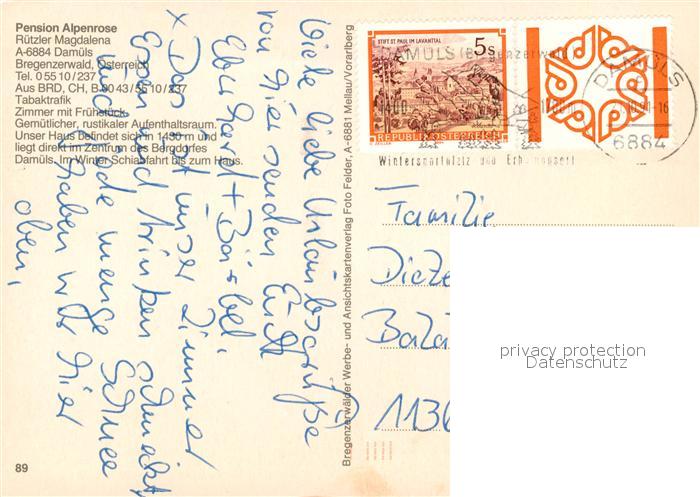 Pension Alpenrose
Rützler Magdalena
A-6884 Damüls
Bregenzerwald, Österreich
Tel. 0 55 10 / 237
Aus BRD, CH, B 00 43/55 10/237
Tabaktrafik
Zimmer mit Frühstück.
Gemütlicher, rustikaler Aufenthaltsraum.
Unser Haus befindet sich in 1430 m und
liegt direkt im Zentrum des Bergdorfes
Damüls. Im Winter Schiabfahrt bis zum Haus.
Viele liebe Urlaubsgrüße
von hier senden Euch
Eberhard + Bärbel.
x Das ist unser Zimmer
Essen und trinken schmeckt
und jede menge Schnee
haben wir hier
oben.
89
Bregenzerwälder Werbe- und Ansichtskartenverlag Foto Felder, A-6881 Mellau/Vorarlberg
STIFT ST. PAUL IM LAVANTTAL
5s
REPUBLIK ÖSTERREICH
DAMÜLS (Bregenzerwald)
1400
1700
Wintersportplatz und
DAMÜLS
6884
Familie
Dieze
Baza
1136
privacy protection
Datenschutz